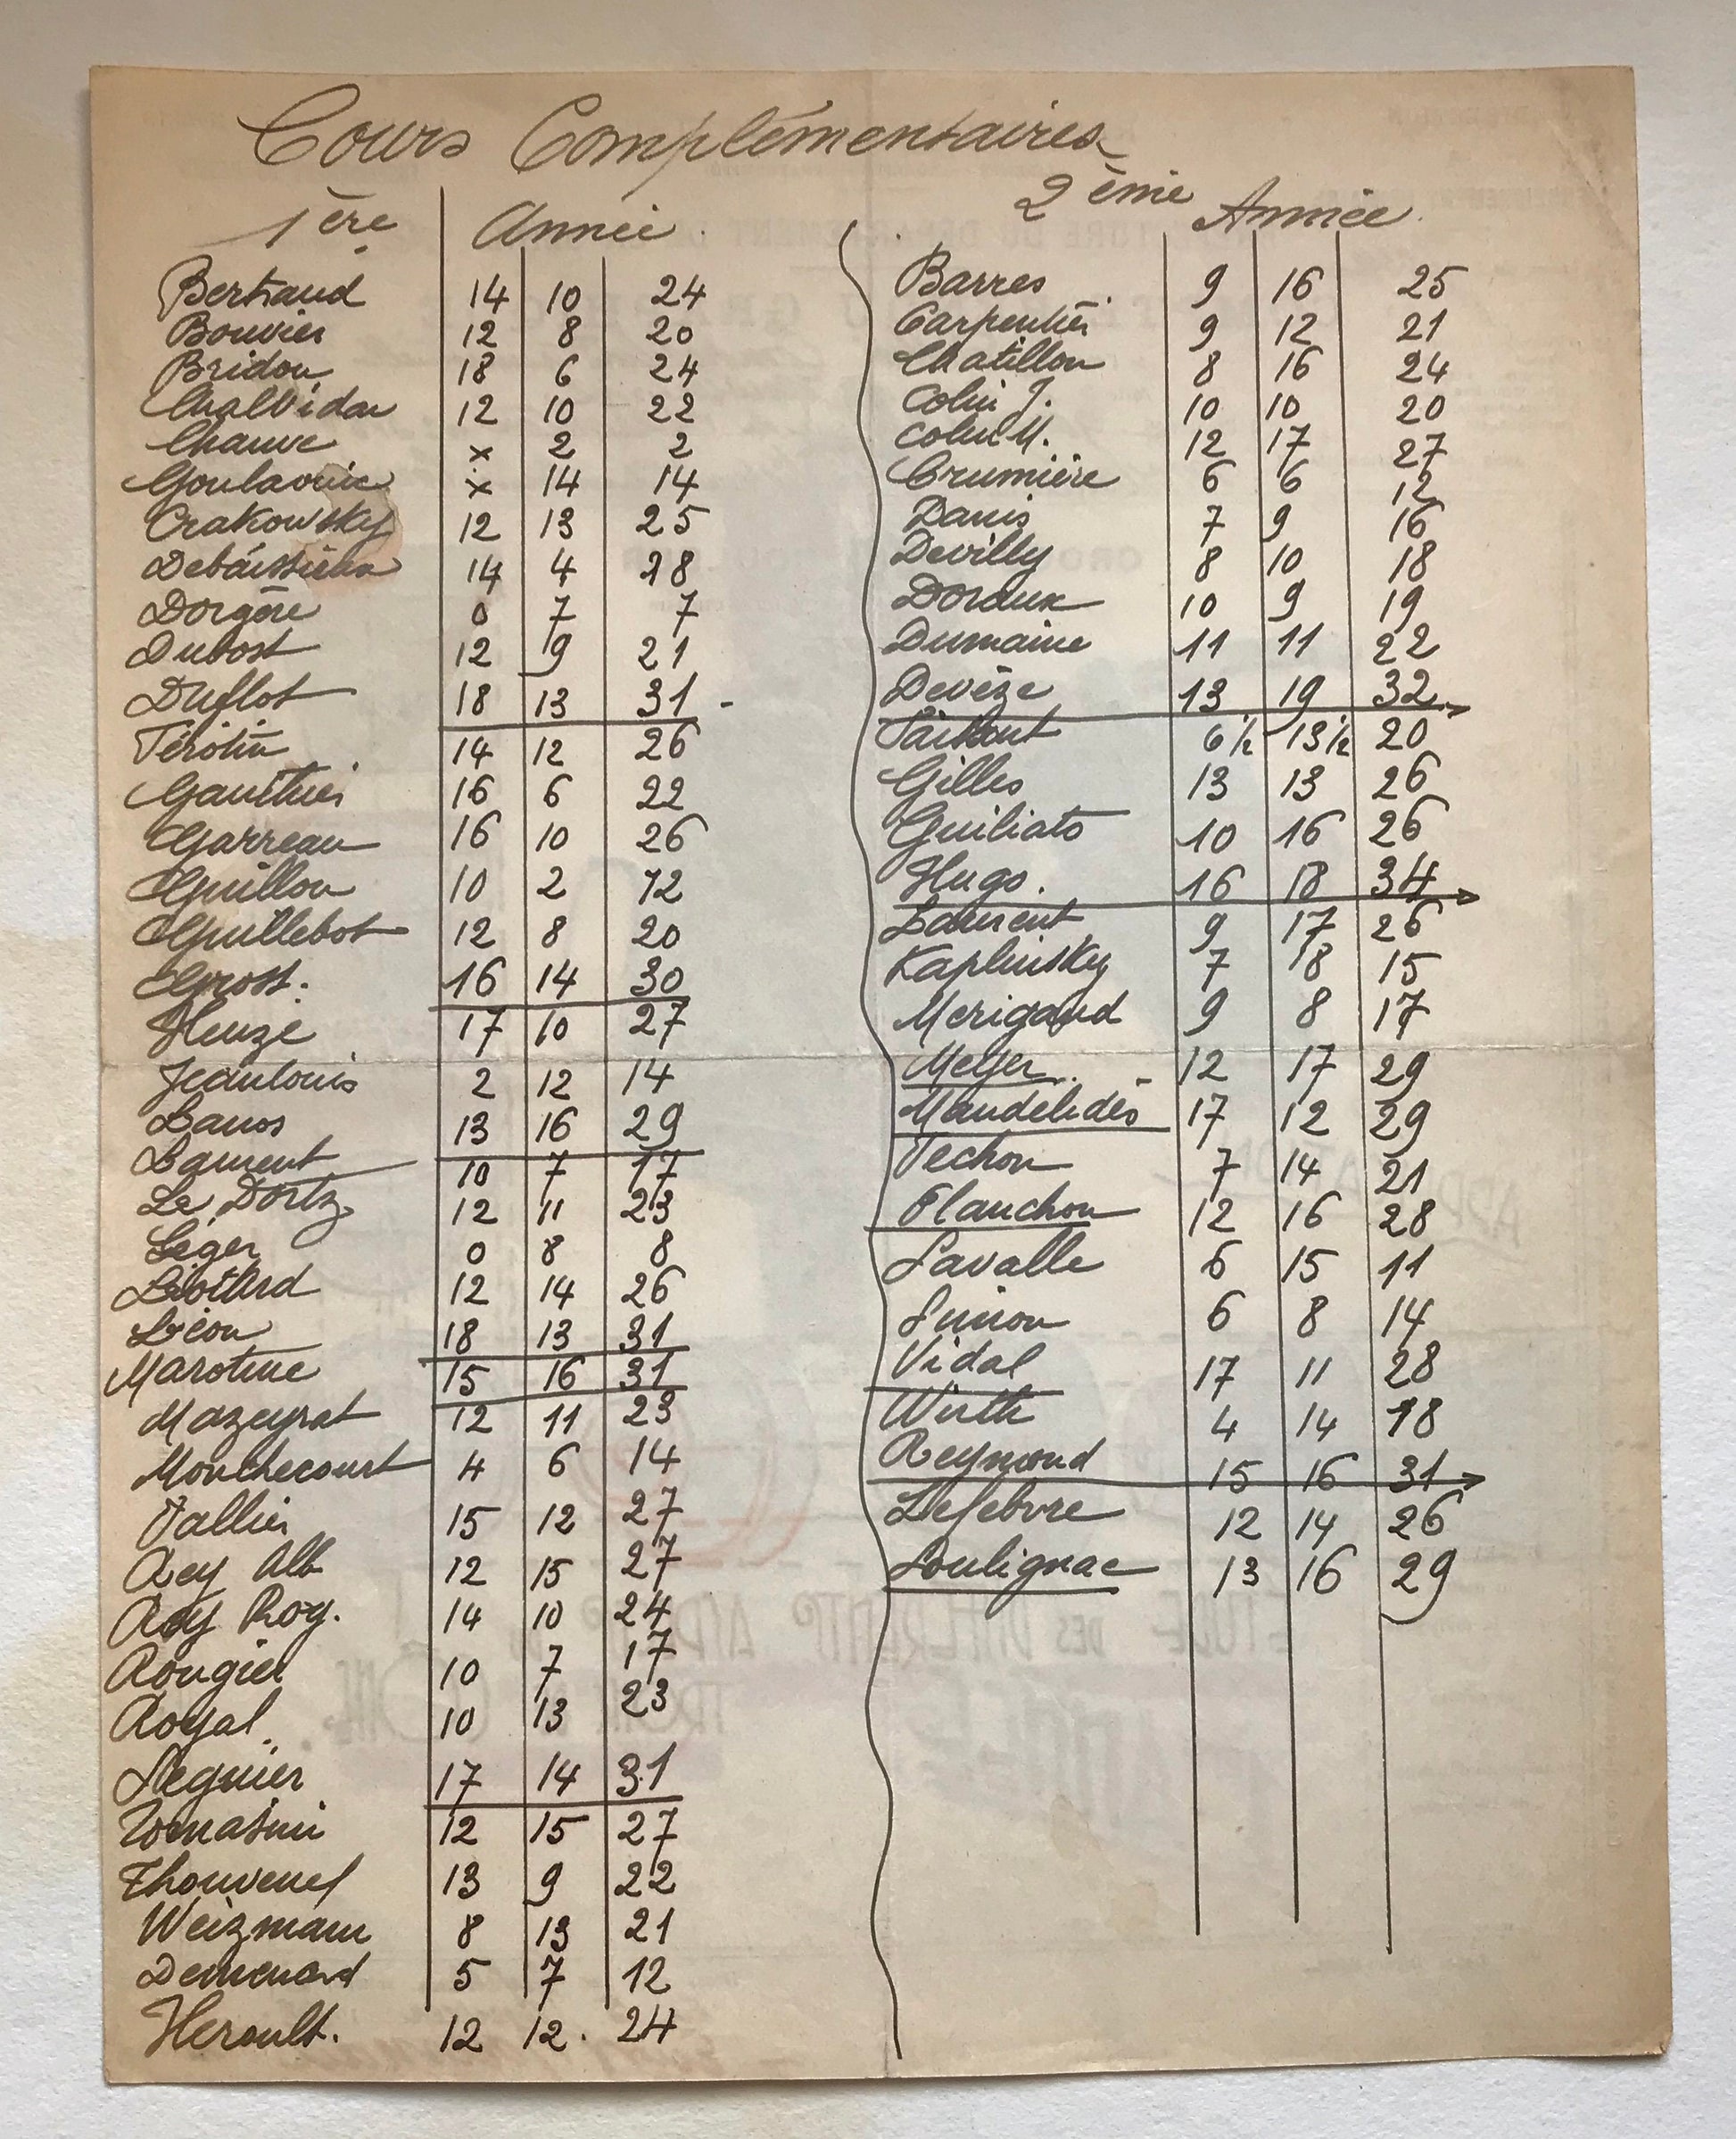 Cours Complémentaires
1ère Année
Bertrand 14 10 24
Bouvier 12 8 20
Bridon 18 6 24
Chalvidan 12 10 22
Chauve x 2 2
Goulavoic x 14 14
Crakowsky 12 13 25
Debaissieux 14 4 18
Dorgère 0 7 7
Dubost 12 9 21
Duflot 18 13 31 -
Férotin 14 12 26
Gauthier 16 6 22
Garreau 16 10 26
Guillon 10 2 12
Guillebot 12 8 20
Grost. 16 14 30
Heuze 17 10 27
Jeanlouis 2 12 14
Lanos 13 16 29
Laurent 10 7 17
Le Dortz 12 11 23
Léger 0 8 8
Liotard 12 14 26
Léon 18 13 31
Marotine 15 16 31
Mazeyrat 12 11 23
Monchecourt 4 6 14
Vallier 15 12 27
Rey Alb 12 15 27
Rey Rog. 14 10 24
Rougier 10 7 17
Royal. 10 13 23
Seguier 17 14 31
Tomasini 12 15 27
Thouvenel 13 9 22
Weizmann 8 13 21
Demenard 5 7 12
Herault. 12 12. 24
2ème Année
Barres 9 16 25
Carpentier 9 12 21
Chatillon 8 16 24
Colin J. 10 10 20
Colin M. 12 17 27
Crumière 6 6 12
Danis 7 9 16
Devilly 8 10 18
Doroux 10 9 19
Dumaine 11 11 22
Devèze 13 19 32
6 1/2 13 1/2 20
Gilles 13 13 26
Guiliato 10 16 26
Hugo. 16 18 34
Laurent 9 17 26
Kaplinsky 7 18 15
Merigaud 9 8 17
Meyer 12 17 29
Mandelidès 17 12 29
Péchon 7 14 21
Planchon 12 16 28
Lavalle 6 15 11
Simon 6 8 14
Vidal 17 11 28
Wirth 4 14 18
Reymond 15 16 31
Lefebvre 12 14 26
Soulignac 13 16 29